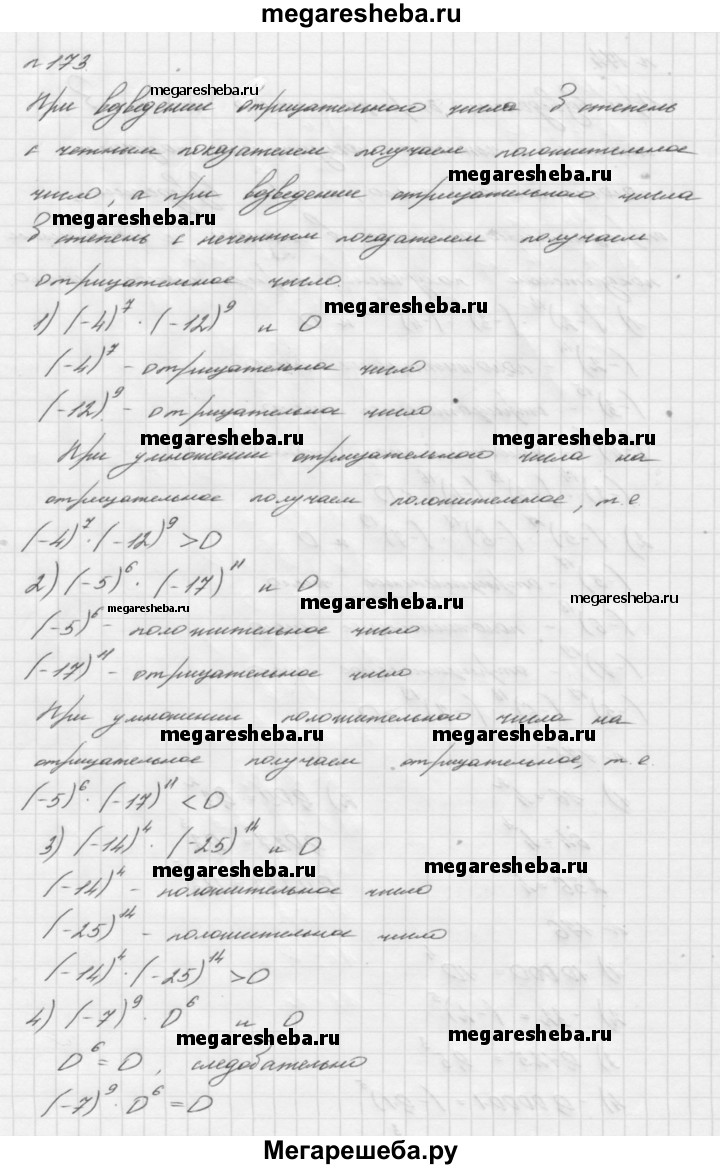 megaresheba.ru
№173
megaresheba.ru
При возведении отрицательного числа в степень
с четным показателем получаем положительное
megaresheba.ru
число, а при возведении отрицательного числа
megaresheba.ru
в степень с нечетным показателем получаем
отрицательное число.
megaresheba.ru
1) (-4)⁷ · (-12)⁹ и 0
(-4)⁷ - отрицательное число
(-12)⁹ - отрицательное число
megaresheba.ru megaresheba.ru
При умножении отрицательного числа на
отрицательное получаем положительное, т.е.
(-4)⁷ · (-12)⁹ > 0
2) (-5)⁶ · (-17)¹¹ и 0
megaresheba.ru megaresheba.ru megaresheba.ru
(-5)⁶ - положительное число
(-17)¹¹ - отрицательное число
При умножении положительного числа на
megaresheba.ru megaresheba.ru
отрицательное получаем отрицательное, т.е.
(-5)⁶ · (-17)¹¹ < 0
3) (-14)⁴ · (-25)¹⁴ и 0
megaresheba.ru megaresheba.ru
(-14)⁴ - положительное число
(-25)¹⁴ - положительное число
(-14)⁴ · (-25)¹⁴ > 0
4) (-7)⁹ · 0⁶ и 0
megaresheba.ru megaresheba.ru
0⁶ = 0, следовательно
(-7)⁹ · 0⁶ = 0
Мегарешеба.ру